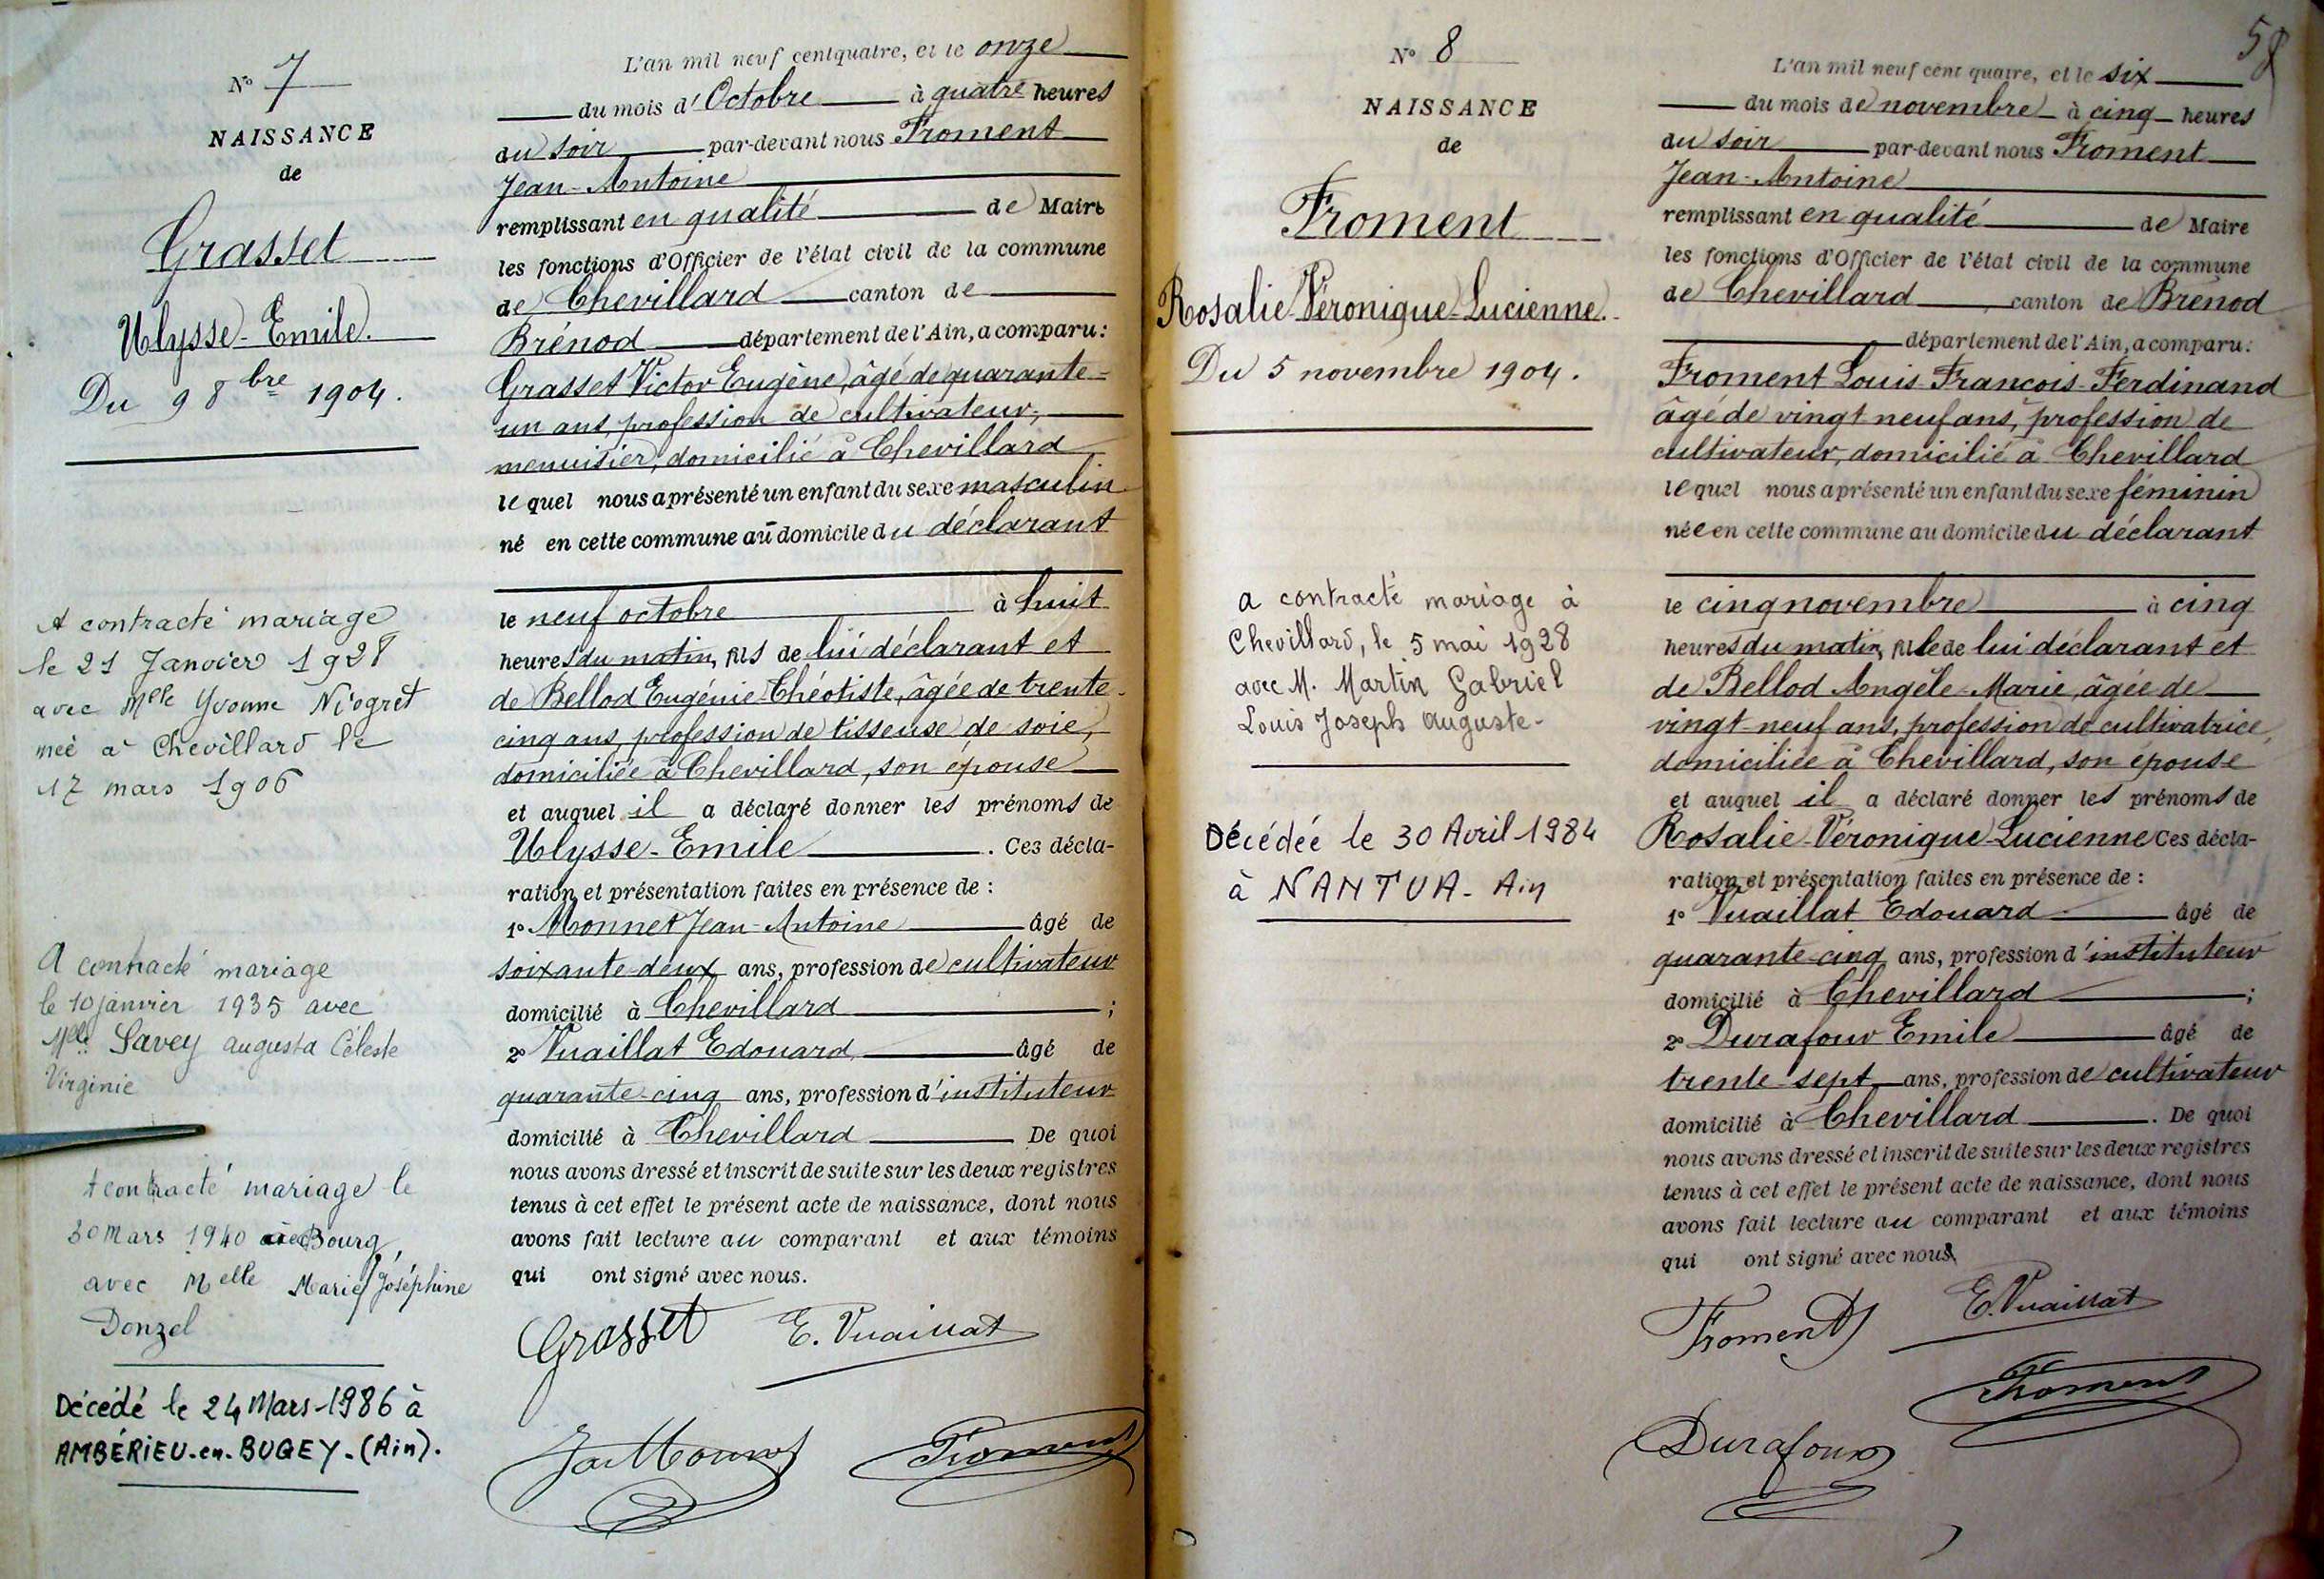 N° 7
NAISSANCE
de
Grasset
Ulysse-Emile.
Du 9 8bre 1904.
A contracté mariage
le 21 Janvier 1928
avec Melle Yvonne Niogret
née à Chevillard le
17 mars 1906
A contracté mariage
le 10 janvier 1935 avec
Melle Savey Augusta Céleste
Virginie
A contracté mariage le
30 Mars 1940 à Bourg,
avec Melle Marie Joséphine
Donzel
Décédé le 24 Mars-1986 à
AMBÉRIEU-en-BUGEY-(Ain).
L'an mil neuf cent quatre, et le onze
du mois d'Octobre à quatre heures
du soir par-devant nous Froment
Jean-Antoine
remplissant en qualité de Maire
les fonctions d'Officier de l'état civil de la commune
de Chevillard canton de
Brénod département de l'Ain, a comparu:
Grasset Victor Eugène, âgé de quarante-
un ans, profession de cultivateur,
menuisier, domicilié à Chevillard
lequel nous a présenté un enfant du sexe masculin
né en cette commune au domicile du déclarant
le neuf octobre à huit
heures du matin, fils de lui déclarant et
de Bellod Eugénie-Théotiste, âgée de trente-
cinq ans, profession de tisseuse de soie,
domiciliée à Chevillard, son épouse
et auquel il a déclaré donner les prénoms de
Ulysse-Emile . Ces décla-
ration et présentation faites en présence de :
1° Monnet Jean-Antoine âgé de
soixante-deux ans, profession de cultivateur
domicilié à Chevillard ;
2° Vuaillat Edouard âgé de
quarante-cinq ans, profession d'instituteur
domicilié à Chevillard De quoi
nous avons dressé et inscrit de suite sur les deux registres
tenus à cet effet le présent acte de naissance, dont nous
avons fait lecture au comparant et aux témoins
qui ont signé avec nous.
Grasset E. Vuaillat
Monnet Froment
58
N° 8
NAISSANCE
de
Froment
Rosalie-Véronique-Lucienne.
Du 5 novembre 1904.
a contracté mariage à
Chevillard, le 5 mai 1928
avec M. Martin Gabriel
Louis Joseph Auguste-
Décédée le 30 Avril-1984
à NANTUA- Ain
L'an mil neuf cent quatre, et le six
du mois de novembre à cinq heures
du soir par-devant nous Froment
Jean-Antoine
remplissant en qualité de Maire
les fonctions d'Officier de l'état civil de la commune
de Chevillard canton de Brénod
département de l'Ain, a comparu:
Froment Louis-François-Ferdinand
âgé de vingt neuf ans, profession de
cultivateur, domicilié à Chevillard
lequel nous a présenté un enfant du sexe féminin
née en cette commune au domicile du déclarant
le cinq novembre à cinq
heures du matin, fille de lui déclarant et
de Bellod Angèle-Marie, âgée de
vingt-neuf ans, profession de cultivatrice,
domiciliée à Chevillard, son épouse
et auquel il a déclaré donner les prénoms de
Rosalie-Véronique-Lucienne Ces décla-
ration et présentation faites en présence de :
1° Vuaillat Edouard âgé de
quarante-cinq ans, profession d'instituteur
domicilié à Chevillard ;
2° Durafour Emile âgé de
trente-sept ans, profession de cultivateur
domicilié à Chevillard . De quoi
nous avons dressé et inscrit de suite sur les deux registres
tenus à cet effet le présent acte de naissance, dont nous
avons fait lecture au comparant et aux témoins
qui ont signé avec nous.
Froment E. Vuaillat
Froment
Durafour